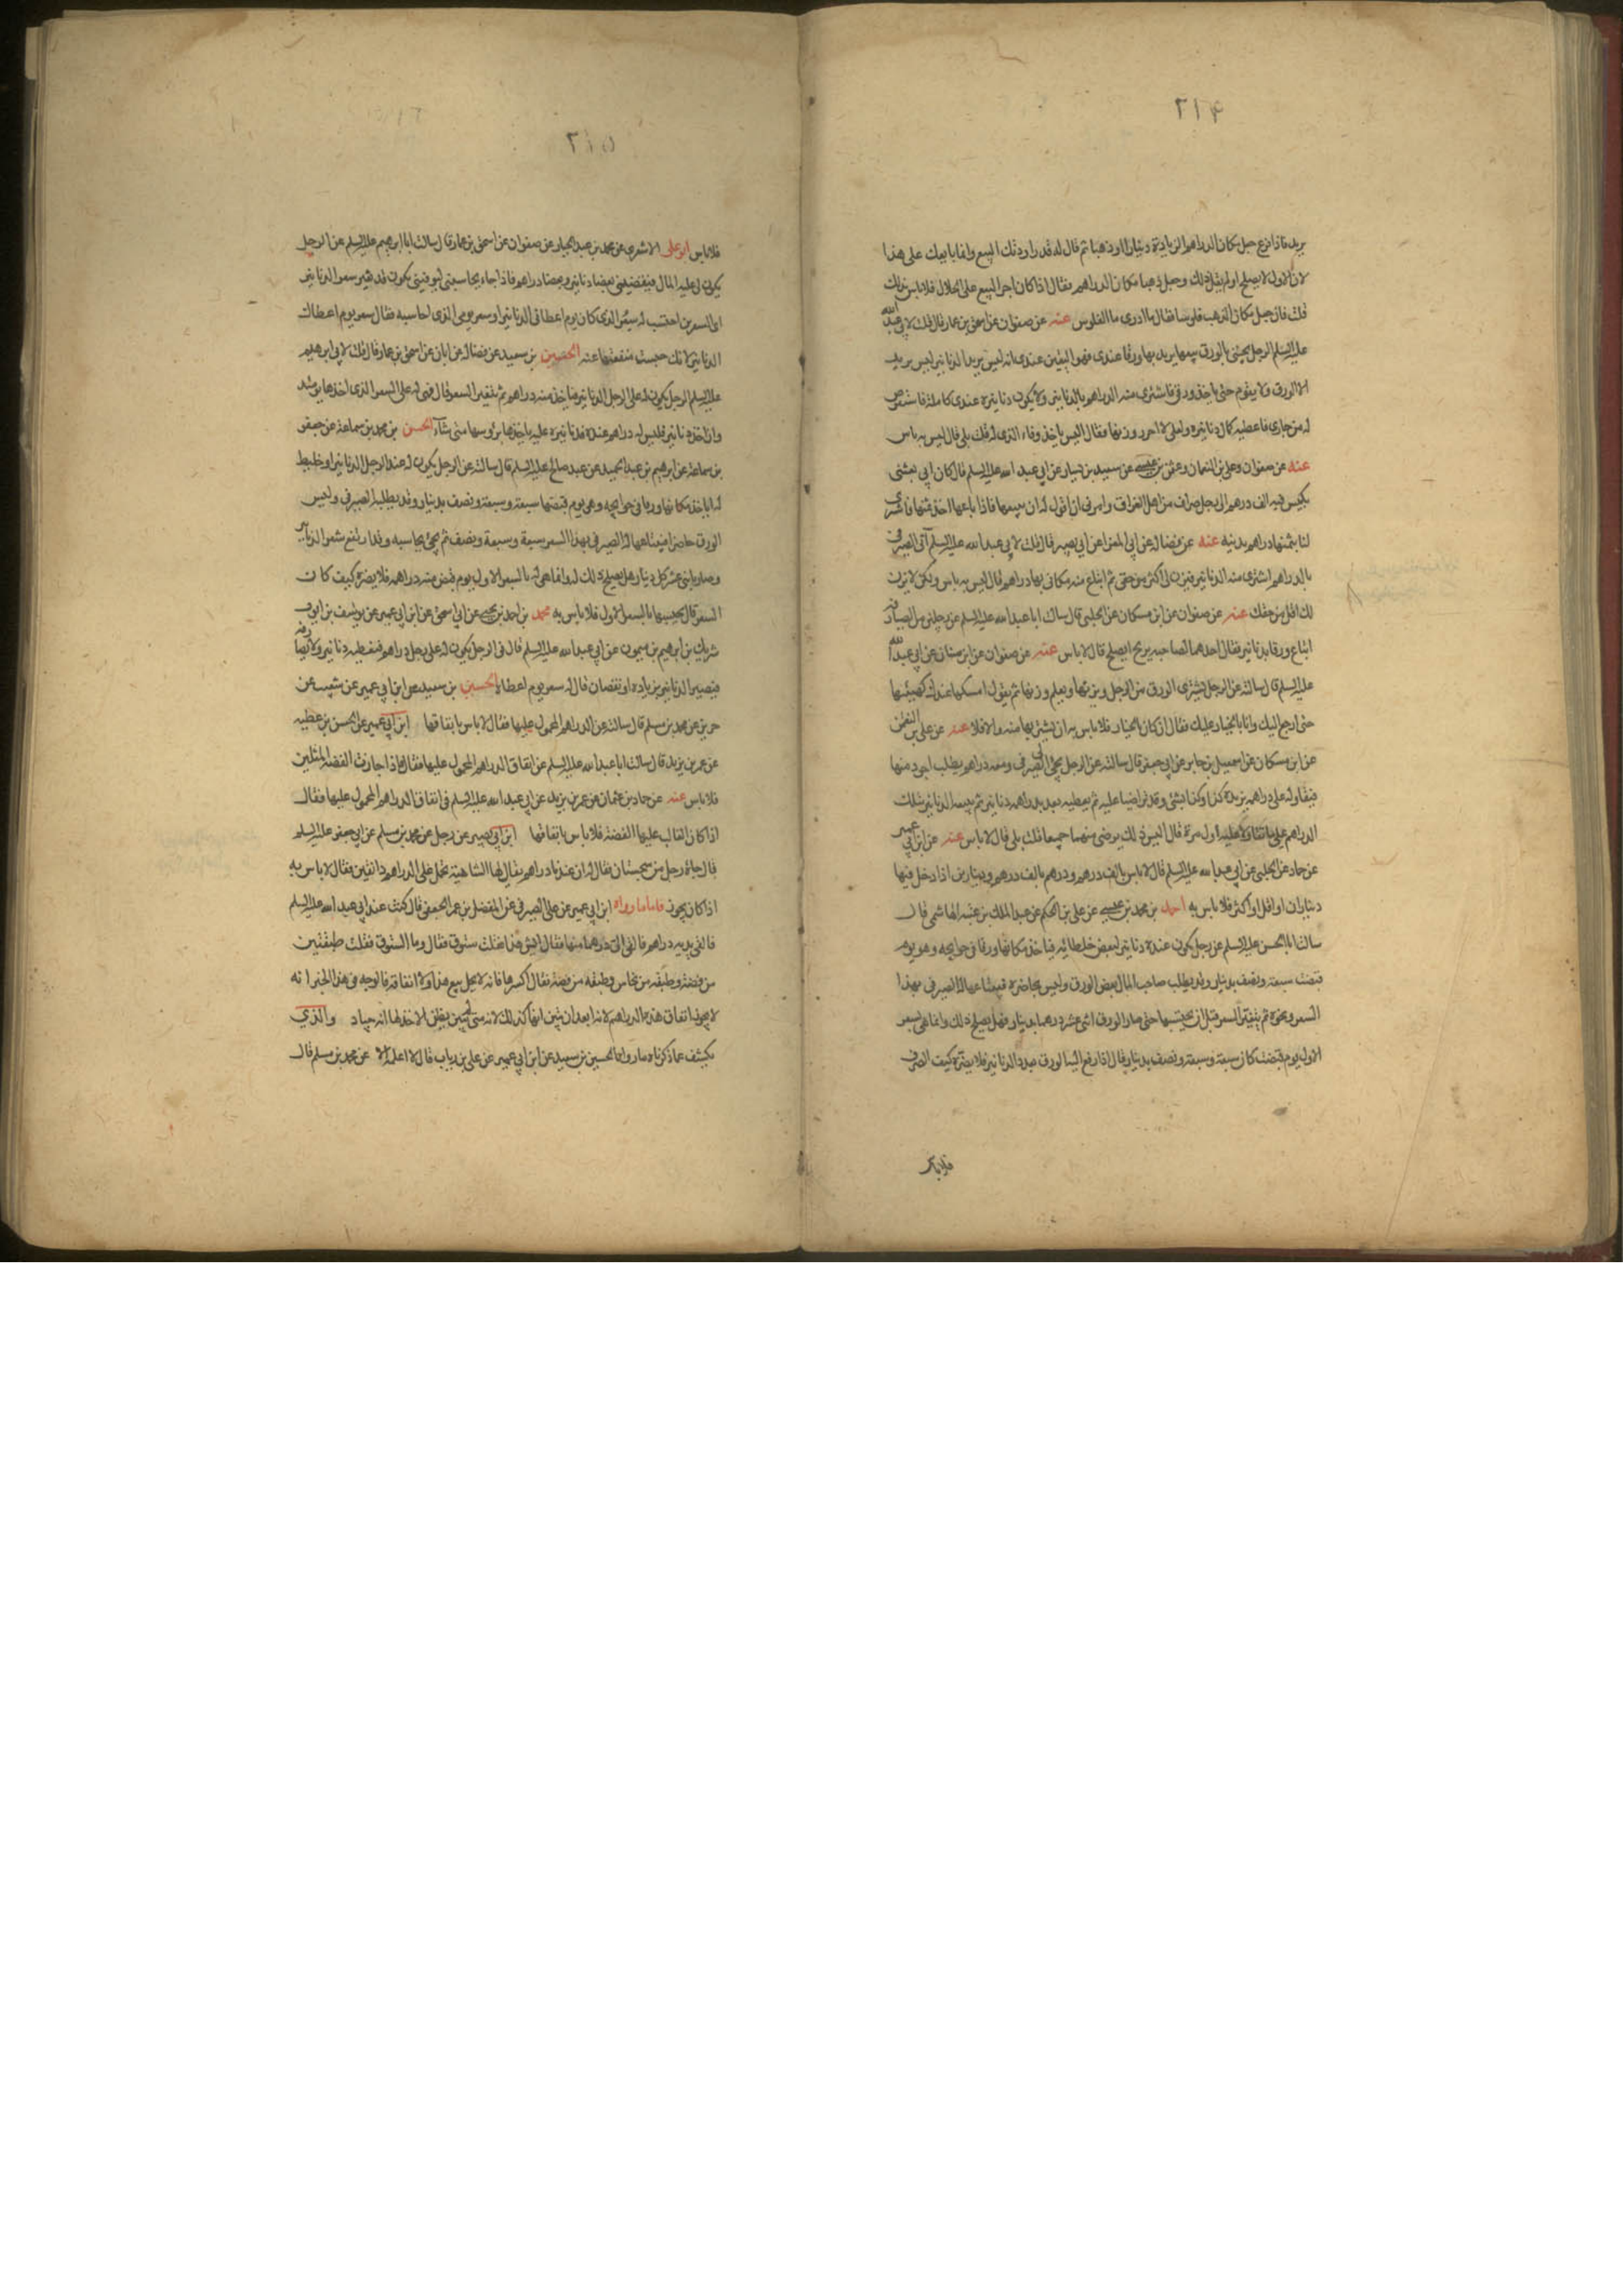 ٢١٤
يريد فاذا نزع جبل مكان الدراهم الزيادة دينارا او ذهبا ثم قال له قد راودتك البيع وانما ابايعك على هذا
لان الاول لا يصلح اولم يقل ذلك وجعل ذهبا مكان الدراهم فقال اذا كان اجرا البيع على الحلال فلا باس بذلك
قلت فان جعل مكان الذهب فلوسا فقال ما ادرى ما الفلوس عنه عن صفوان عن اسحق بن عمار قال قلت لابي عبد الله
عليه السلم الرجل يجيئنى بالورق يبيعها يريد بها ورقا عندى فهو اليقين عندى انه ليس يريد الدنانير ليس يريد
الا الورق ولا يقوم حتى ياخذ ورقى فاشترى منه الدراهم بالدنانير ولا يكون دنانيره عندى كاملة فاستقرض
له من جارى فاعطيه كمال دنانيره ولعلى لا احرز وزنها فقال اليس ياخذ وفاء الذى له قلت بلى قال ليس به باس
عنه عن صفوان وعلى بن النعمان وعثمن بن عيسى عن سعيد بن يسار عن ابي عبد الله عليه السلم قال كان ابي بعثنى
بكيس فيه الف درهم الى رجل صراف من اهل العراق وامرنى ان اقول له ان يبيعها فاذا باعها اخذ ثمنها فاشترى
لنا بثمنها دراهم مدينية عنه عن فضالة عن ابي المغرا عن ابي بصير قال قلت لابي عبد الله عليه السلم آتى الصيرفى
بالدراهم اشترى منه الدنانير فيزن لى اكثر من حقى ثم ابتاع منه مكانى بها دراهم قال ليس به باس ولكن لا يزن
لك اقل من حقك عنه عن صفوان عن ابن مسكان عن الحلبى قال سالت ابا عبد الله عليه السلم عن رجلين من الصيارفه
ابتاع ورقا بدنانير فقال احدهما لصاحبه يربح ايصلح قال لا باس عنه عن صفوان عن ابن سنان عن ابي عبد الله
عليه السلم قال سالته عن الرجل يشترى الورق من الرجل ويزنها ويعلم وزنها ثم يقول امسكها عندك كهيئتها
حتى ارجع اليك وانا بالخيار عليك فقال ان كان بالخيار فلا باس به ان يشترى بها منه والا فلا عنه عن على بن النعمن
عن ابن مسكان عن اسمعيل بن جابر عن ابي جعفر قال سالته عن الرجل يجئ الى الصيرفى ومعه دراهم يطلب اجود منها
فيقاوله على دراهمه يزيده كذا وكذا بشئ وقد تراضيا عليه ثم يعطيه بعد بدراهمه دنانير ثم يبيعه الدنانير بتلك
الدراهم على ما تقاولا عليه اول مرة قال اليس ذلك برضى منهما جميعا قلت بلى قال لا باس عنه عن ابن ابي عمير
عن حماد عن الحلبى عن ابي عبد الله عليه السلم قال لا باس بالف درهم ودرهم بالف درهم ودينارين اذا دخل فيها
ديناران او اقل او اكثر فلا باس به احمد بن محمد بن عيسى عن على بن الحكم عن عبد الملك بن عتبه الهاشمى قال
سالت ابا الحسن عليه السلم عن رجل يكون عنده دنانير لبعض خلطائه فياخذ مكانها ورقا فى حوايجه وهو يوم
قبضت سبعة ونصف بدينار وقد يطلب صاحب المال بعض الورق وليس بحاضرة فيبتاعها له الصيرفى بهذا
السعر ونحوه ثم يتغير السعر قبل ان يحتسبها حتى صار الورق اثنى عشر درهما بدينار فهل يصلح ذلك وانما هى بسعر
الاول يوم قبضت كان سبعة وسبعة ونصف بدينار قال اذا رفع اليه الورق بعدد الدنانير فلا يضره كيف الصرف
فلا باس
٢١٥
فلا باس ابو على الاشعرى عن محمد بن عبد الجبار عن صفوان عن اسحق بن عمار قال سالت ابا ابرهيم عليه السلم عن الرجل
يكون لى عليه المال فيقضينى بعضا دنانير وبعضا دراهم فاذا جاء يحاسبنى ليوفينى يكون قد تغير سعر الدنانير
اى السعرين احتسب له سعر الذى كان يوم اعطانى الدنانير او سعر يومى الذى احاسبه فقال سعر يوم اعطاك
الدنانير لانك حبست منفعتها عنه الحسين بن سعيد عن فضالة عن ابان عن اسحق بن عمار قال قلت لابي ابرهيم
عليه السلم الرجل يكون له على الرجل الدنانير فياخذ منه دراهم ثم يتغير السعر قال فهى له على السعر الذى اخذها يومئذ
وان اخذ دنانير فليس له دراهم عنده فدنانيره عليه ياخذها برؤسها متى شآء الحسن بن محمد بن سماعة عن جعفر
بن سماعة عن ابرهيم بن عبد الحميد عن عبد صالح عليه السلم قال سالته عن الرجل يكون له عند الرجل الدنانير او خليط
له ياخذ مكانها ورقا فى حوايجه وهى يوم قبضها سبعة وسبعة ونصف بدينار وقد يطلبها الصيرفى وليس
الورق حاضرا فيبتاعها له الصيرفى بهذا السعر سبعة وسبعة ونصف ثم يجئ يحاسبه وقد ارتفع سعر الدنانير
وصار باثنى عشر كل دينار هل يصلح ذلك له وانما هى له بالسعر الاول يوم قبض منه دراهمه فلا يضره كيف كان
السعر قال يحسبها بالسعر الاول فلا باس به محمد بن احمد بن يحيى عن ابي اسحق عن ابن ابي عمير عن يوسف بن ايوب
شريك بن ابرهيم بن ميمون عن ابي عبد الله عليه السلم قال فى الرجل يكون له على رجل دراهم فيعطيه دنانير ولا يصارفه
فيصير الدنانير بزيادة او نقصان قال له سعر يوم اعطاه الحسين بن سعيد عن ابن ابي عمير عن شعيب عن
حريز عن محمد بن مسلم قال سالته عن الدراهم المحمول عليها فقال لا باس بانفاقها ابن ابي عمير عن الحسن بن عطيه
عن عمر بن يزيد قال سالت ابا عبد الله عليه السلم عن انفاق الدراهم المحمول عليها فقال اذا جازت الفضة المثلين
فلا باس عنه عن حماد بن عثمان عن عمر بن يزيد عن ابي عبد الله عليه السلم فى انفاق الدراهم المحمول عليها فقال
اذا كان الغالب عليها الفضة فلا باس بانفاقها ابن ابي بصير عن رجل عن محمد بن مسلم عن ابي جعفر عليه السلم
قال جاءه رجل من سجستان فقال له ان عندنا دراهم يقال لها الشاهية تحمل على الدراهم دانقين فقال لا باس به
اذا كان يجوز فاما ما رواه ابن ابي عمير عن على الصيرفى عن المفضل بن عمر الجعفى قال كنت عند ابي عبد الله عليه السلم
فالقى بين يديه دراهم فالقى الى درهما منها فقال ايش هذا فقلت ستوق فقال وما الستوق فقلت طبقتين
من فضة وطبقه من نحاس وطبقه من فضة فقال اكسرها فانه لا يحل بيع هذا ولا انفاقه فالوجه فى هذا الخبر انه
لا يجوز انفاق هذه الدراهم لانه ابعد ان يتبين انها كذلك لانه متى لم يبين يظن الاخذ لها انه جياد والذي
يكشف عما ذكرناه ما رواه الحسين بن سعيد عن ابن ابي عمير عن على بن رياب قال لا اعلمه الا عن محمد بن مسلم قال